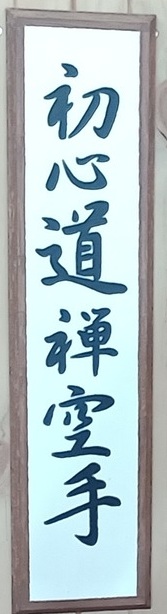 初心道禅空手